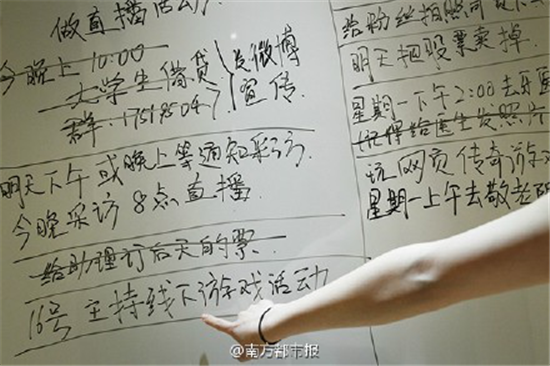 做直播活动.
今晚上 10:00
大学生借贷 发微博
群:17519504 宣传.
明天下午或晚上等通知彩访.
今晚采访 8点直播
给助理订后天的票.
16号 主持线下游戏活动
给粉丝拍照
明天把股票卖掉.
星期一下午2:00去牙医
(记得给医生发照片
玩网页传奇游
星期一上午去敬老院
@南方都市报